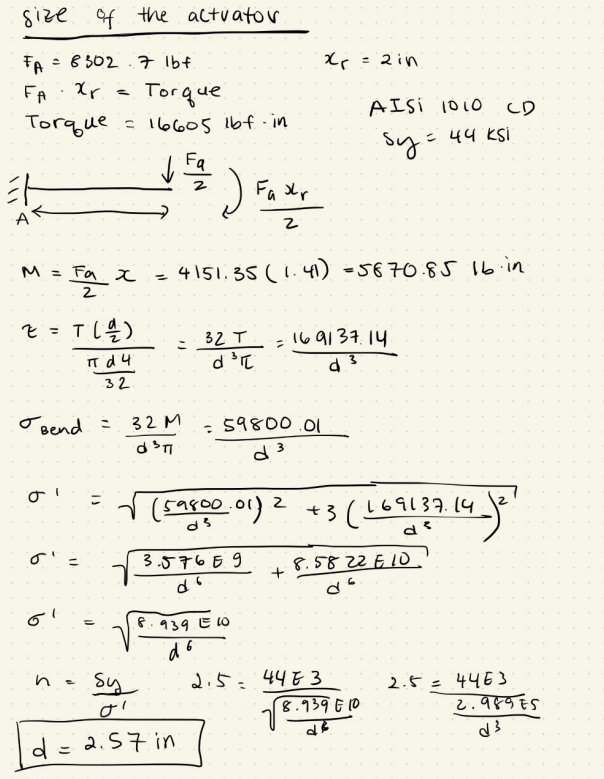 size of the actuator
F_A = 8302.7 lbf
x_r = 2in
F_A · x_r = Torque
Torque = 16605 lbf·in
AISi 1010 CD
Sy = 44 KSi
Fa/2
Fa x_r/2
A
M = Fa/2 x = 4151.35 (1.41) = 5870.85 lb·in
τ = T(d/2)/(πd4/32) = 32T/d³π = 169137.14/d³
σ_Bend = 32M/d³π = 59800.01/d³
σ' = √((59800.01/d³)2 + 3(169137.14/d³)²)
σ' = √(3.576E9/d⁶ + 8.5822E10/d⁶)
σ' = √(8.939E10/d⁶)
n = Sy/σ' 2.5 = 44E3/√(8.939E10/d⁶) 2.5 = 44E3/(2.989E5/d³)
d = 2.57 in